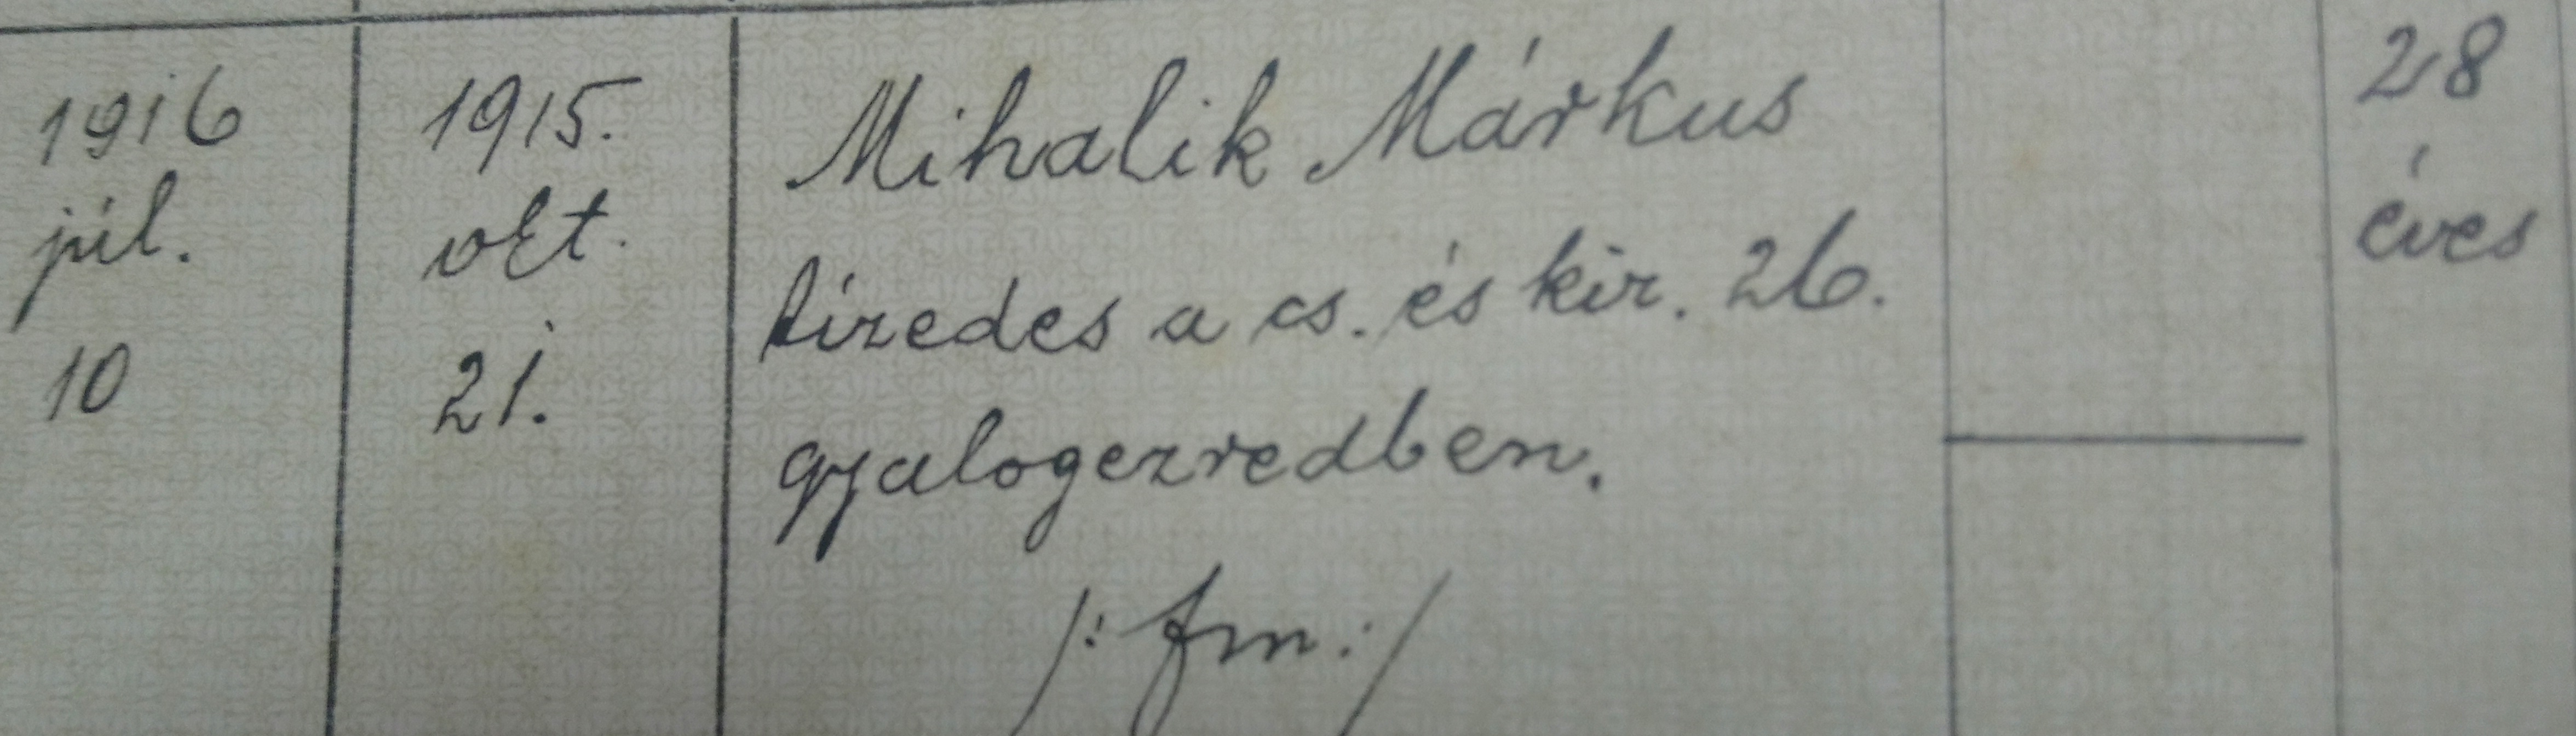 1916
júl.
10
1915.
okt.
21.
Mihalik Márkus
tizedes a cs. és kir. 26.
gyalogezredben.
/: fm :/
28
éves